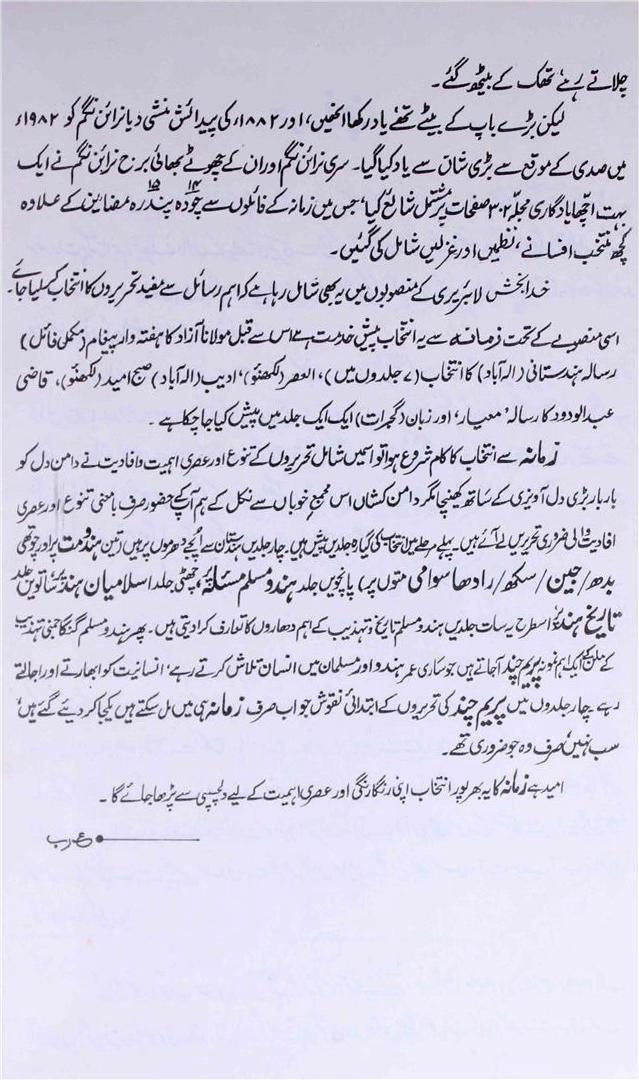 چلاتے رہے، تھک کے بیٹھ گئے۔
لیکن بڑے باپ کے بیٹے تھے یاد رکھا انھیں، اور ۱۸۸۲ء کی پیدائش منشی دیا نرائن نگم کو ۱۹۸۲ء
میں صدی کے موقع سے بڑی شان سے یاد کیا گیا۔ سری نرائن نگم اور ان کے چھوٹے بھائی برج نرائن نگم نے ایک
بہت اچھا یادگاری مجلہ ۳۰۲ صفحات پر مشتمل شائع کیا، جس میں زمانہ کے فائلوں سے چودہ پندرہ مضامین کے علاوہ
کچھ منتخب افسانے، نظمیں اور غزلیں شامل کی گئیں۔
خدا بخش لائبریری کے منصوبوں میں یہ بھی شامل رہا ہے کہ اہم رسائل سے مفید تحریروں کا انتخاب کر لیا جائے۔
اسی منصوبے کے تحت زمانہ سے یہ انتخاب پیش خدمت ہے اس سے قبل مولانا آزاد کا ہفتہ وار پیغام (مکمل فائل)
رسالہ ہندستانی (الہ آباد) کا انتخاب (۷ جلدوں میں)، العصر (لکھنؤ)، ادیب (الہ آباد) صبح امید (لکھنؤ)، قاضی
عبد الودود کا رسالہ 'معیار'، اور زبان (گجرات) ایک ایک جلد میں پیش کیا جا چکا ہے۔
زمانہ سے انتخاب کا کام شروع ہوا تو اسمیں شامل تحریروں کے تنوع اور عصری اہمیت و افادیت نے دامن دل کو
بار بار بڑی دل آویزی کے ساتھ کھینچا مگر دامن کشاں اس مجمع خوباں سے نکل کے ہم آپ کے حضور صرف با معنی تنوع اور عصری
افادیت والی ضروری تحریریں لے آئے ہیں۔ پہلے مرحلے میں انتخاب کی گیارہ جلدیں پیش ہیں۔ چار جلدیں ہندستان سے اُپجے دھرموں پر ہیں (تین ہندو مت پر اور چوتھی
بدھ/جین/سکھ/رادھا سوامی متوں پر) پانچویں جلد ہندو مسلم مسئلہ پر، چھٹی جلد اسلامیان ہند پر ساتویں جلد
تاریخ ہند پر، اسطرح یہ سات جلدیں ہندو مسلم تاریخ و تہذیب کے اہم دھاروں کا تعارف کرا دیتی ہیں۔ پھر ہندو مسلم گنگا جمنی تہذیب
کے ملن کا ایک اہم نمونہ پریم چند آ جاتے ہیں جو ساری عمر ہندو اور مسلمان میں انسان تلاش کرتے رہے، انسانیت کو ابھارتے اور اجالتے
رہے چار جلدوں میں پریم چند کی تحریروں کے ابتدائی نقوش جو اب صرف زمانہ ہی میں مل سکتے ہیں یکجا کر دیئے گئے ہیں
سب نہیں، صرف وہ جو ضروری تھے۔
امید ہے زمانہ کا یہ بھرپور انتخاب اپنی رنگا رنگی اور عصری اہمیت کے لیے دلچسپی سے پڑھا جائے گا۔